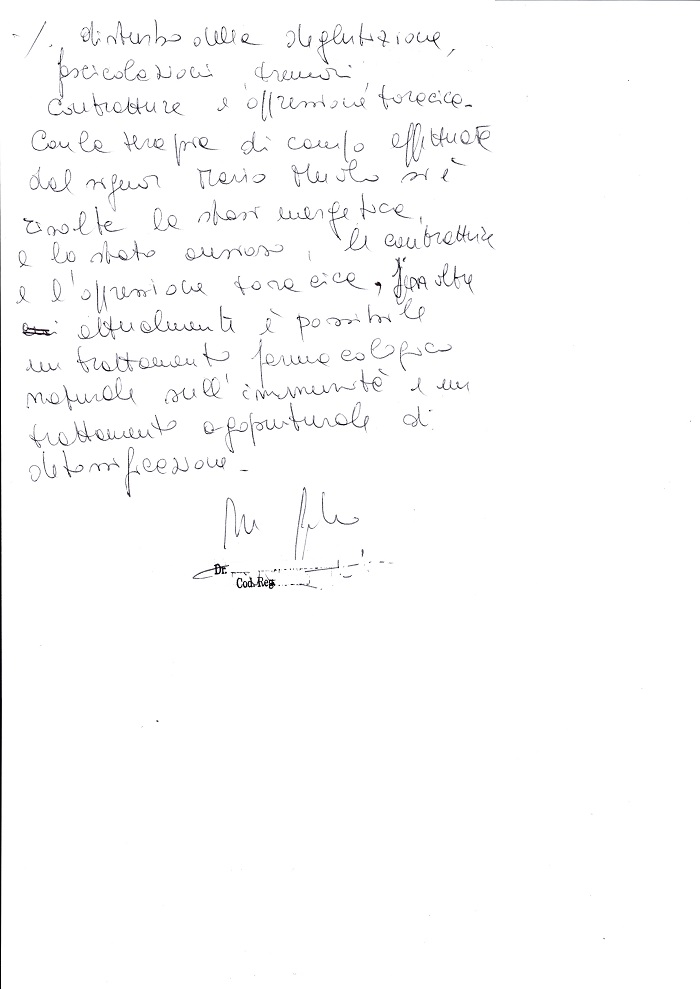 ./. disturbo della deglutizione,
fascicolazioni tremori,
contratture e oppressione toracica.
Con la terapia di campo effettuata
dal signor Mario si è
risolta la stasi energetica,
e lo stato ansioso, le contratture
e l'oppressione toracica, Inoltre
attualmente è possibile
un trattamento farmacologico
naturale sull'immunità e un
trattamento agopunturale di
detossificazione.
Dr.
Cod. Reg.